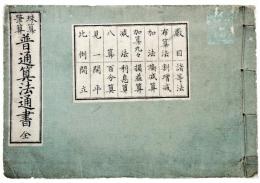 珠算
筆算
普通算法通書 全
数目諸等法
布算法割増減
加法損減算
加算九々損益算
減法利息算
八算百分算
見一開平
比例開立